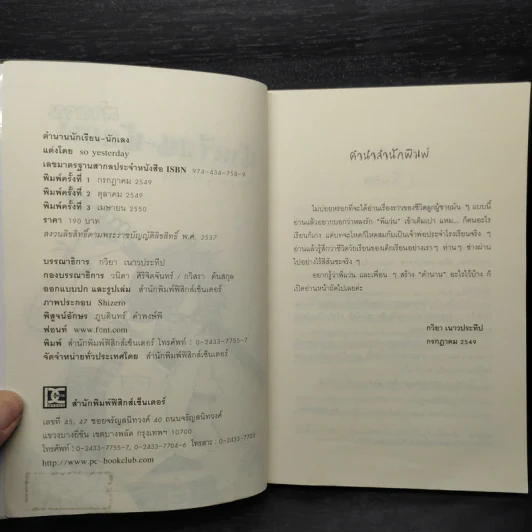 ตำนานนักเรียน-นักเลง
แต่งโดย so yesterday
เลขมาตรฐานสากลประจำหนังสือ ISBN 974-434-758-9
พิมพ์ครั้งที่ 1 กรกฎาคม 2549
พิมพ์ครั้งที่ 2 ตุลาคม 2549
พิมพ์ครั้งที่ 3 เมษายน 2550
ราคา 190 บาท
สงวนลิขสิทธิ์ตามพระราชบัญญัติลิขสิทธิ์ พ.ศ. 2537
บรรณาธิการ กวิยา เนาวประทีป
กองบรรณาธิการ วนิดา ศิริจิตจันทร์ / กวิสรา ตันสกุล
ออกแบบปก และรูปเล่ม สำนักพิมพ์ฟิสิกส์เซ็นเตอร์
ภาพประกอบ Shizero
พิสูจน์อักษร ภูบดินทร์ คำพงษ์พี
ฟอนท์ www.f0nt.com
พิมพ์ สำนักพิมพ์ฟิสิกส์เซ็นเตอร์ โทรศัพท์ : 0-2433-7755-7
จัดจำหน่ายทั่วประเทศโดย สำนักพิมพ์ฟิสิกส์เซ็นเตอร์
สำนักพิมพ์ฟิสิกส์เซ็นเตอร์
เลขที่ 45, 47 ซอยจรัญสนิทวงศ์ 40 ถนนจรัญสนิทวงศ์
แขวงบางยี่ขัน เขตบางพลัด กรุงเทพฯ 10700
โทรศัพท์ : 0-2433-7755-7, 0-2433-7704-6 โทรสาร : 0-2433-
http://www.pc-bookclub.com
คำนำสำนักพิมพ์
ไม่บ่อยหรอกที่จะได้อ่านเรื่องราวของชีวิตลูกผู้ชายมัน ๆ แบบนี้
อ่านแล้วอยากบอกว่าหลงรัก "พี่แว่น" เข้าเต็มเปา แหม... ก็คนอะไร
เรียนก็เก่ง แต่บทจะโหดก็โหดสมกับเป็นเจ้าพ่อประจำโรงเรียนจริง ๆ
อ่านแล้วรู้สึกว่าชีวิตวัยเรียนของเด็กเรียนอย่างเรา ๆ ท่าน ๆ ช่างผ่าน
ไปอย่างไร้สีสันซะจริง ๆ
อยากรู้ว่าพี่แว่น และเพื่อน ๆ สร้าง "ตำนาน" อะไรไว้บ้าง ก็
เปิดอ่านหน้าถัดไปเลยค่ะ
กวิยา เนาวประทีป
กรกฎาคม 2549